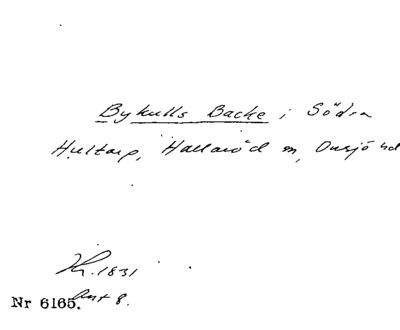 Bykulls Backe i Södra
Hultarp, Hallaröd sn, Onsjö hd
1831
Nr 6165. 8.